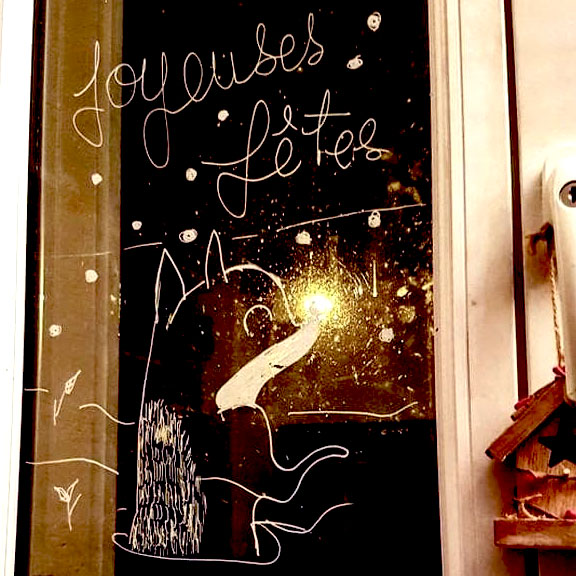 Joyeuses
fêtes